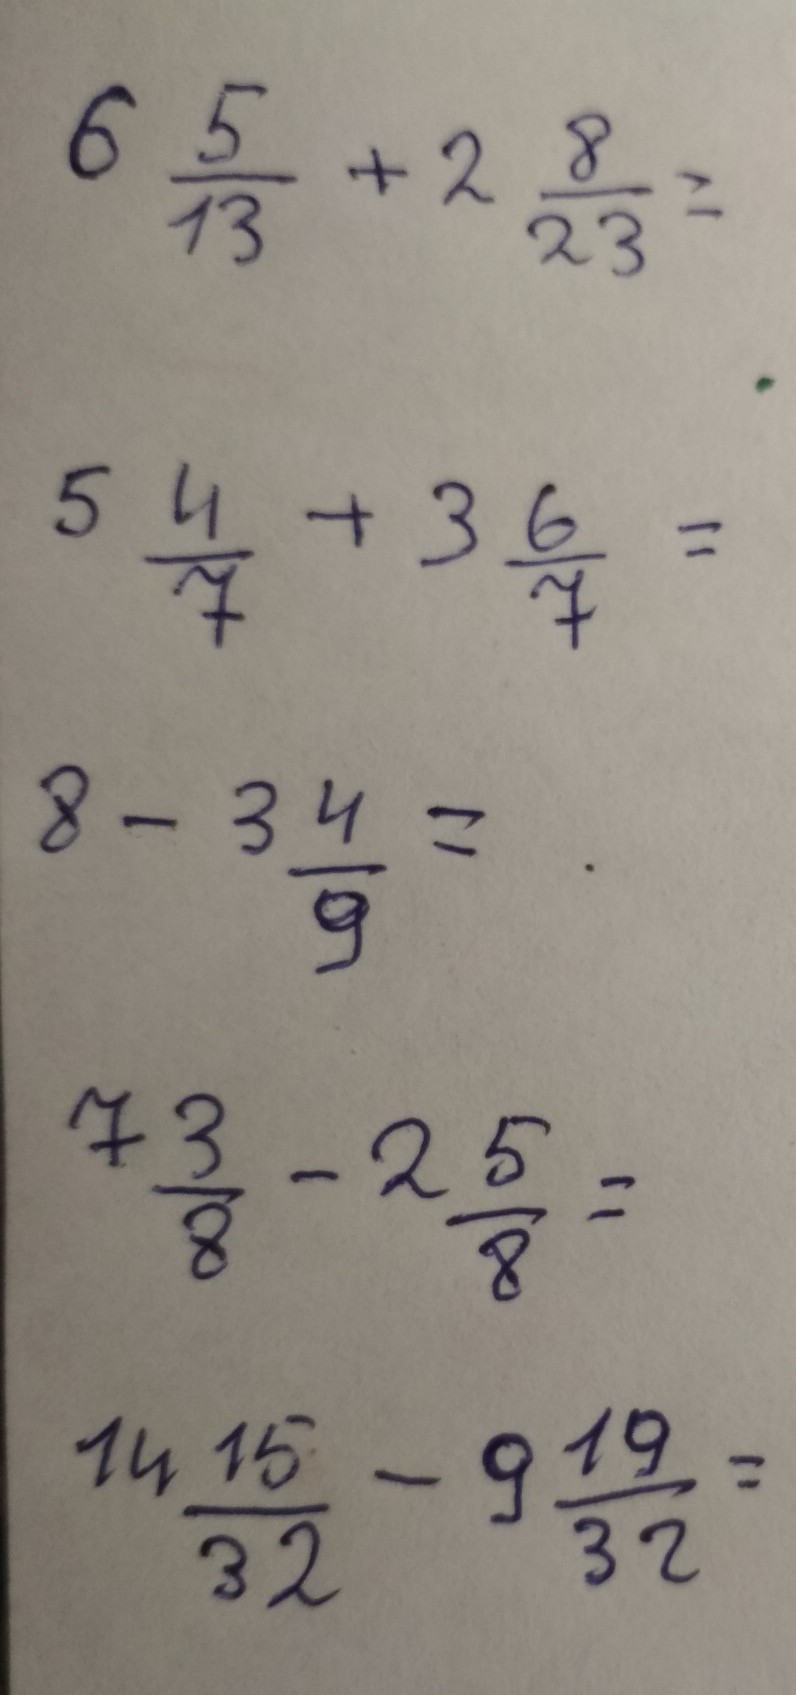 6 5/13 + 2 8/23 =
5 4/7 + 3 6/7 =
8 - 3 4/9 =
7 3/8 - 2 5/8 =
14 15/32 - 9 19/32 =